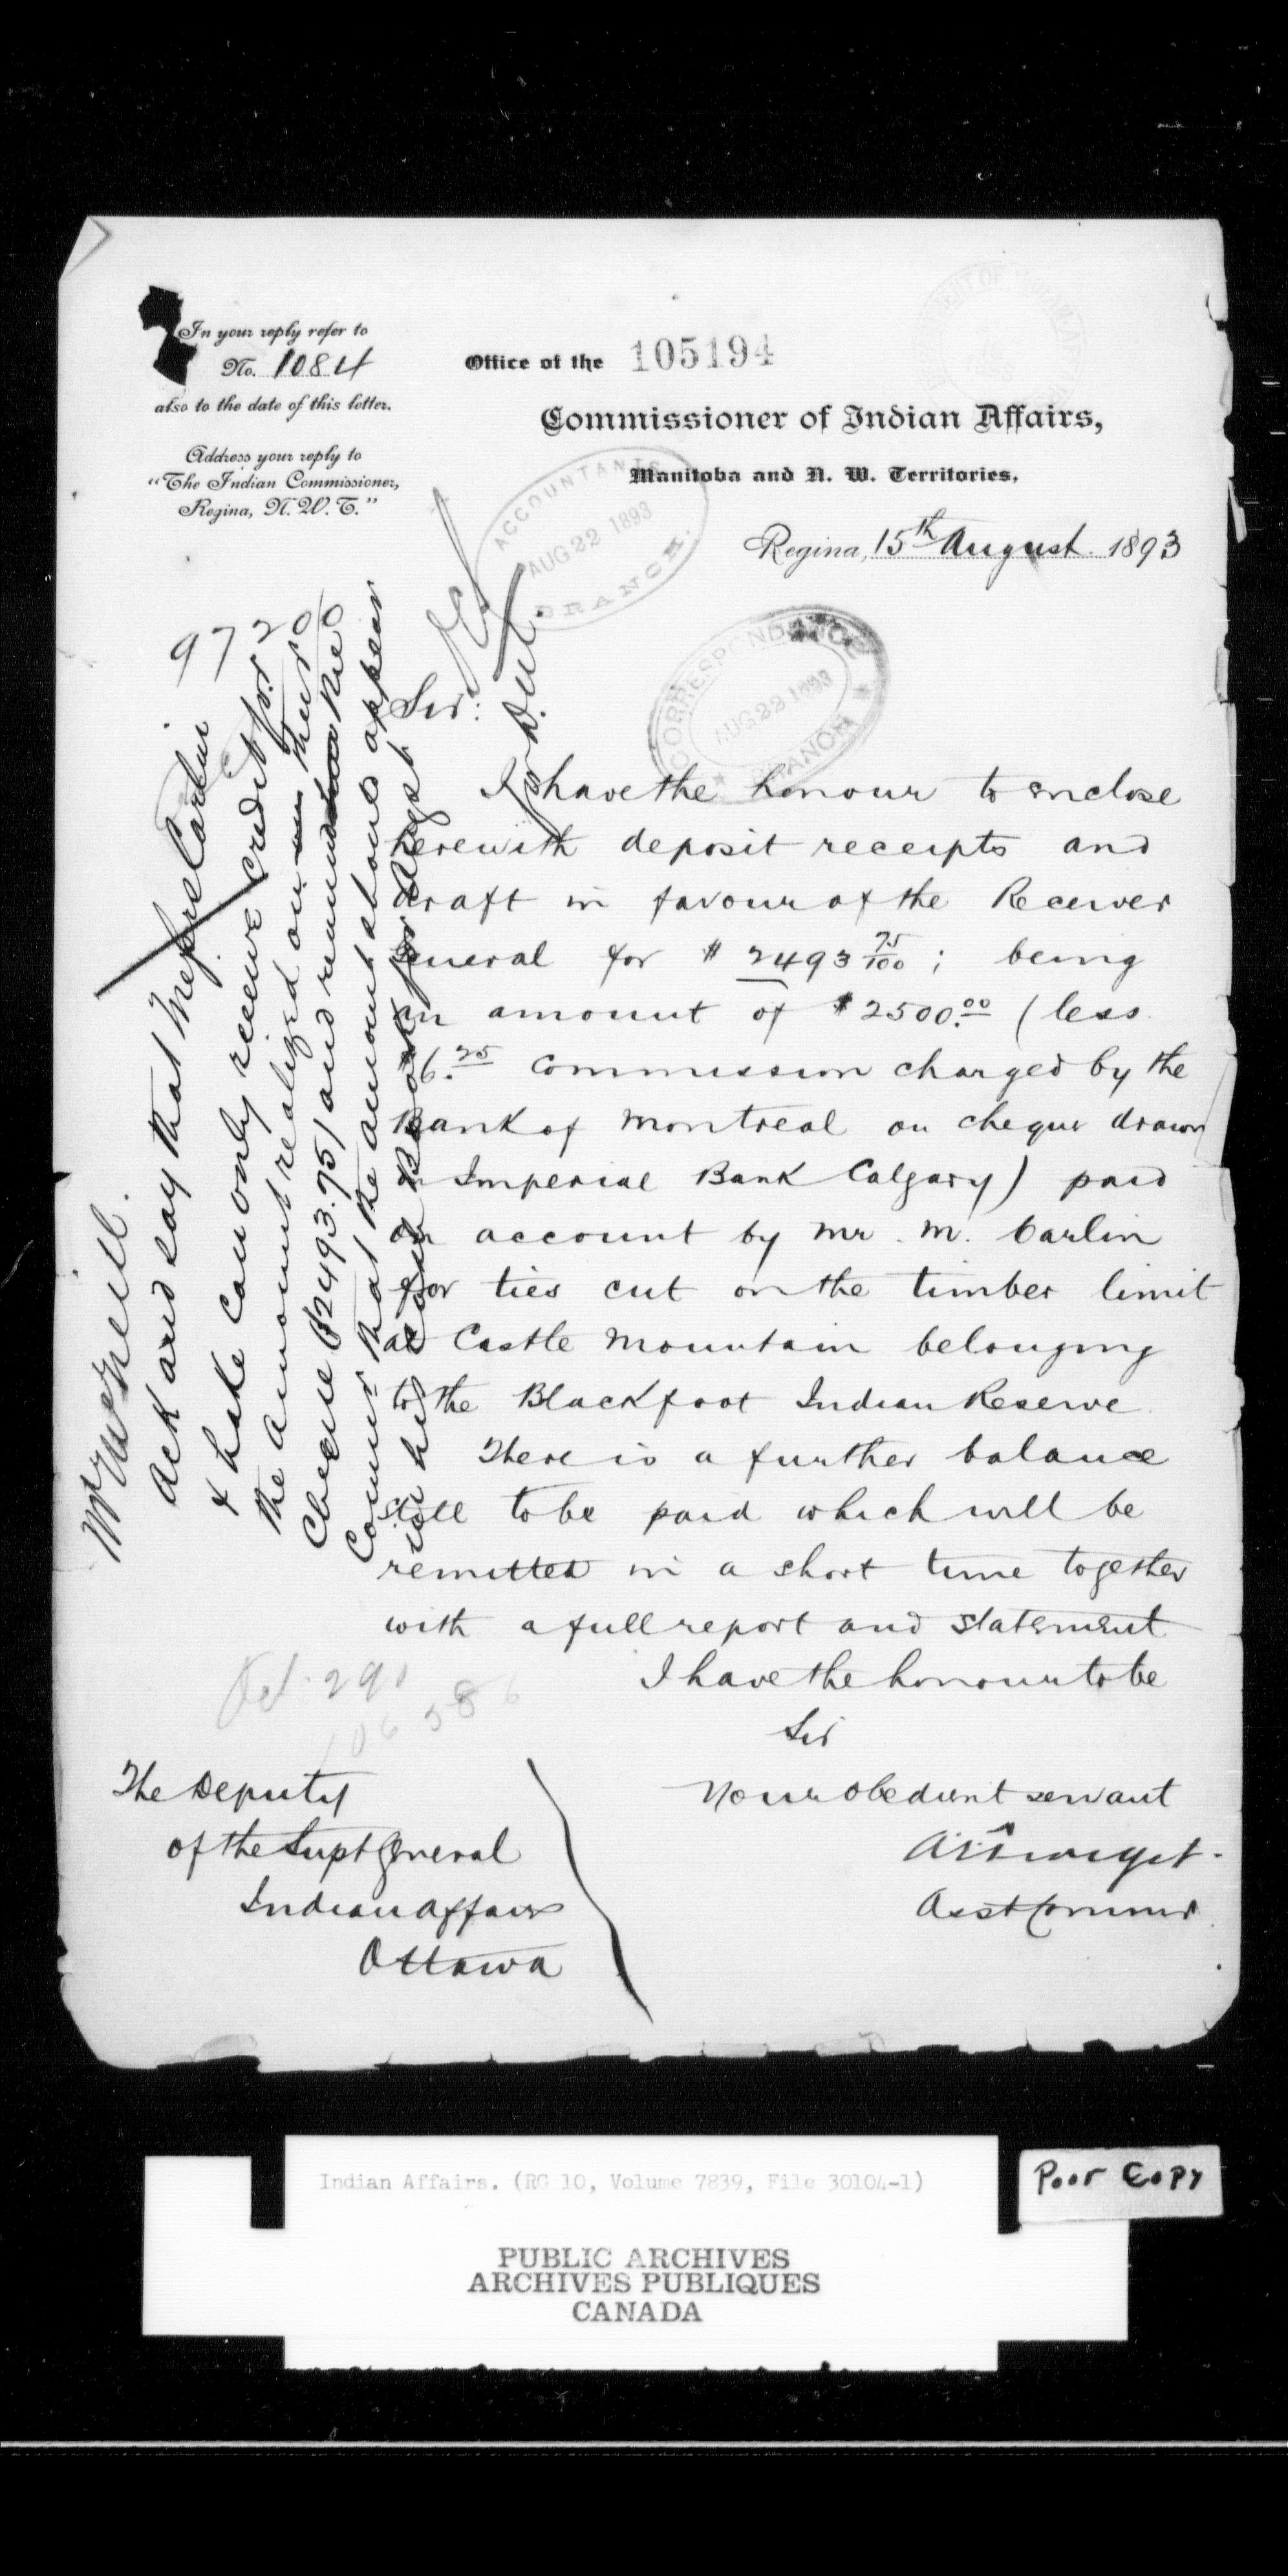 In your reply refer to
No. 1084
also to the date of this letter.
Address your reply to
"The Indian Commissioner,
Regina, N. W. T."
Office of the 105194
Commissioner of Indian Affairs,
Manitoba and N. W. Territories,
Regina, 15th August 1893
ACCOUNTANTS
AUG 22 1893
BRANCH.
CORRESPONDENCE
AUG 22 1893
BRANCH
97200
Sir:
I have the honour to enclose
herewith deposit receipts and
draft in favour of the Receiver
General for $ 2493 75/100; being
an amount of $2500.00 (less
$6.25 commission charged by the
Bank of Montreal on cheque drawn
on Imperial Bank Calgary) paid
on account by Mr. M. Carlin
for ties cut on the timber limit
at Castle Mountain belonging
to the Blackfoot Indian Reserve
There is a further balance
still to be paid which will be
remitted in a short time together
with a full report and statement
I have the honour to be
Sir
Your obedient servant
Asst Commr
The Deputy
of the Supt General
Indian Affairs
Ottawa
Mr McNeill.
Ack and say that Messrs Carlin
& Lake can only receive credit for
the amount realized on their
cheque ($2493.75) and remind the
Commr that the amount should appear
in his Cash Book for August
Indian Affairs. (RG 10, Volume 7839, File 30104-1)
Poor Copy
PUBLIC ARCHIVES
ARCHIVES PUBLIQUES
CANADA